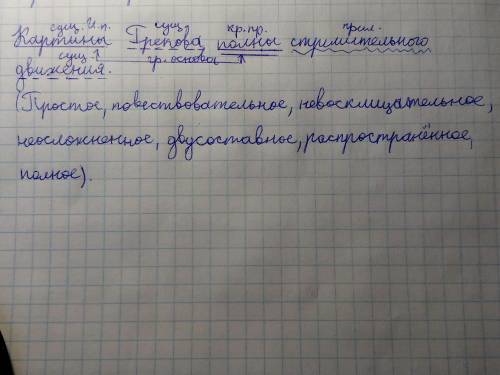 сущ. И.п. сущ. кр.пр. прил.
Картины Грекова полны стремительного
сущ. гр. основа
движения.
(Простое, повествовательное, невосклицательное,
неосложненное, двусоставное, распространённое,
полное).